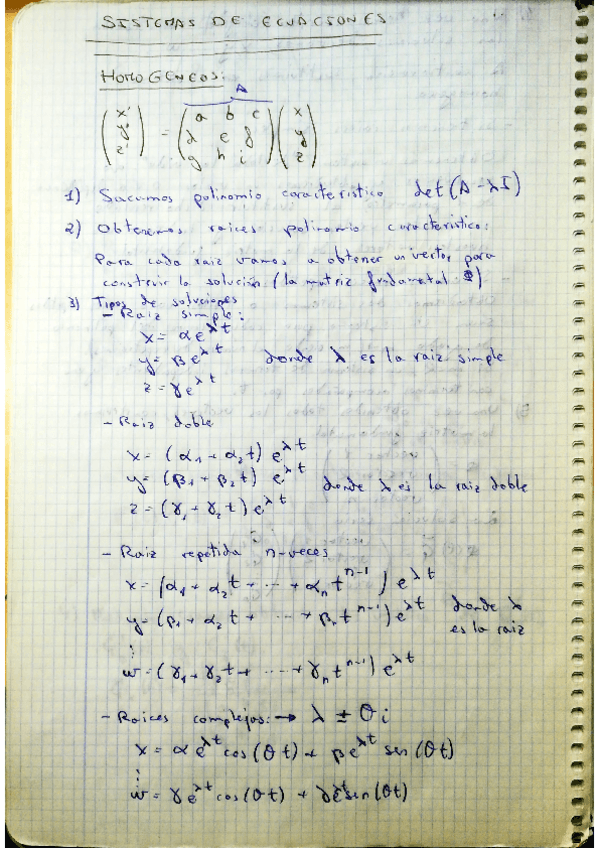 SISTEMAS DE ECUACIONES
HOMOGÉNEOS:
A
(x' y' z') = (a b c d e f g h i) (x y z)
1) Sacamos polinomio característico det(A-λI)
2) Obtenemos raices polinomio característico:
Para cada raiz vamos a obtener un vector para
construir la solución (la matriz fundamental Φ).
3) Tipos de soluciones
- Raiz simple:
x = αe^λt
y = βe^λt donde λ es la raiz simple
z = γe^λt
- Raiz doble
x = (α₁ + α₂t) e^λt
y = (β₁ + β₂t) e^λt donde λ es la raiz doble
z = (γ₁ + γ₂t) e^λt
- Raiz repetida n-veces
x = (α₁ + α₂t + ... + αₙt^n-1) e^λt
y = (β₁ + α₂t + ... + βₙt^n-1) e^λt donde λ
es la raiz
⋮
w = (γ₁ + γ₂t + ... + γₙt^n-1) e^λt
- Raices complejas: → λ ± θi
x = αe^λt cos(θt) + βe^λt sen(θt)
⋮
w = γe^λt cos(θt) + ∂e^λt sen(θt)